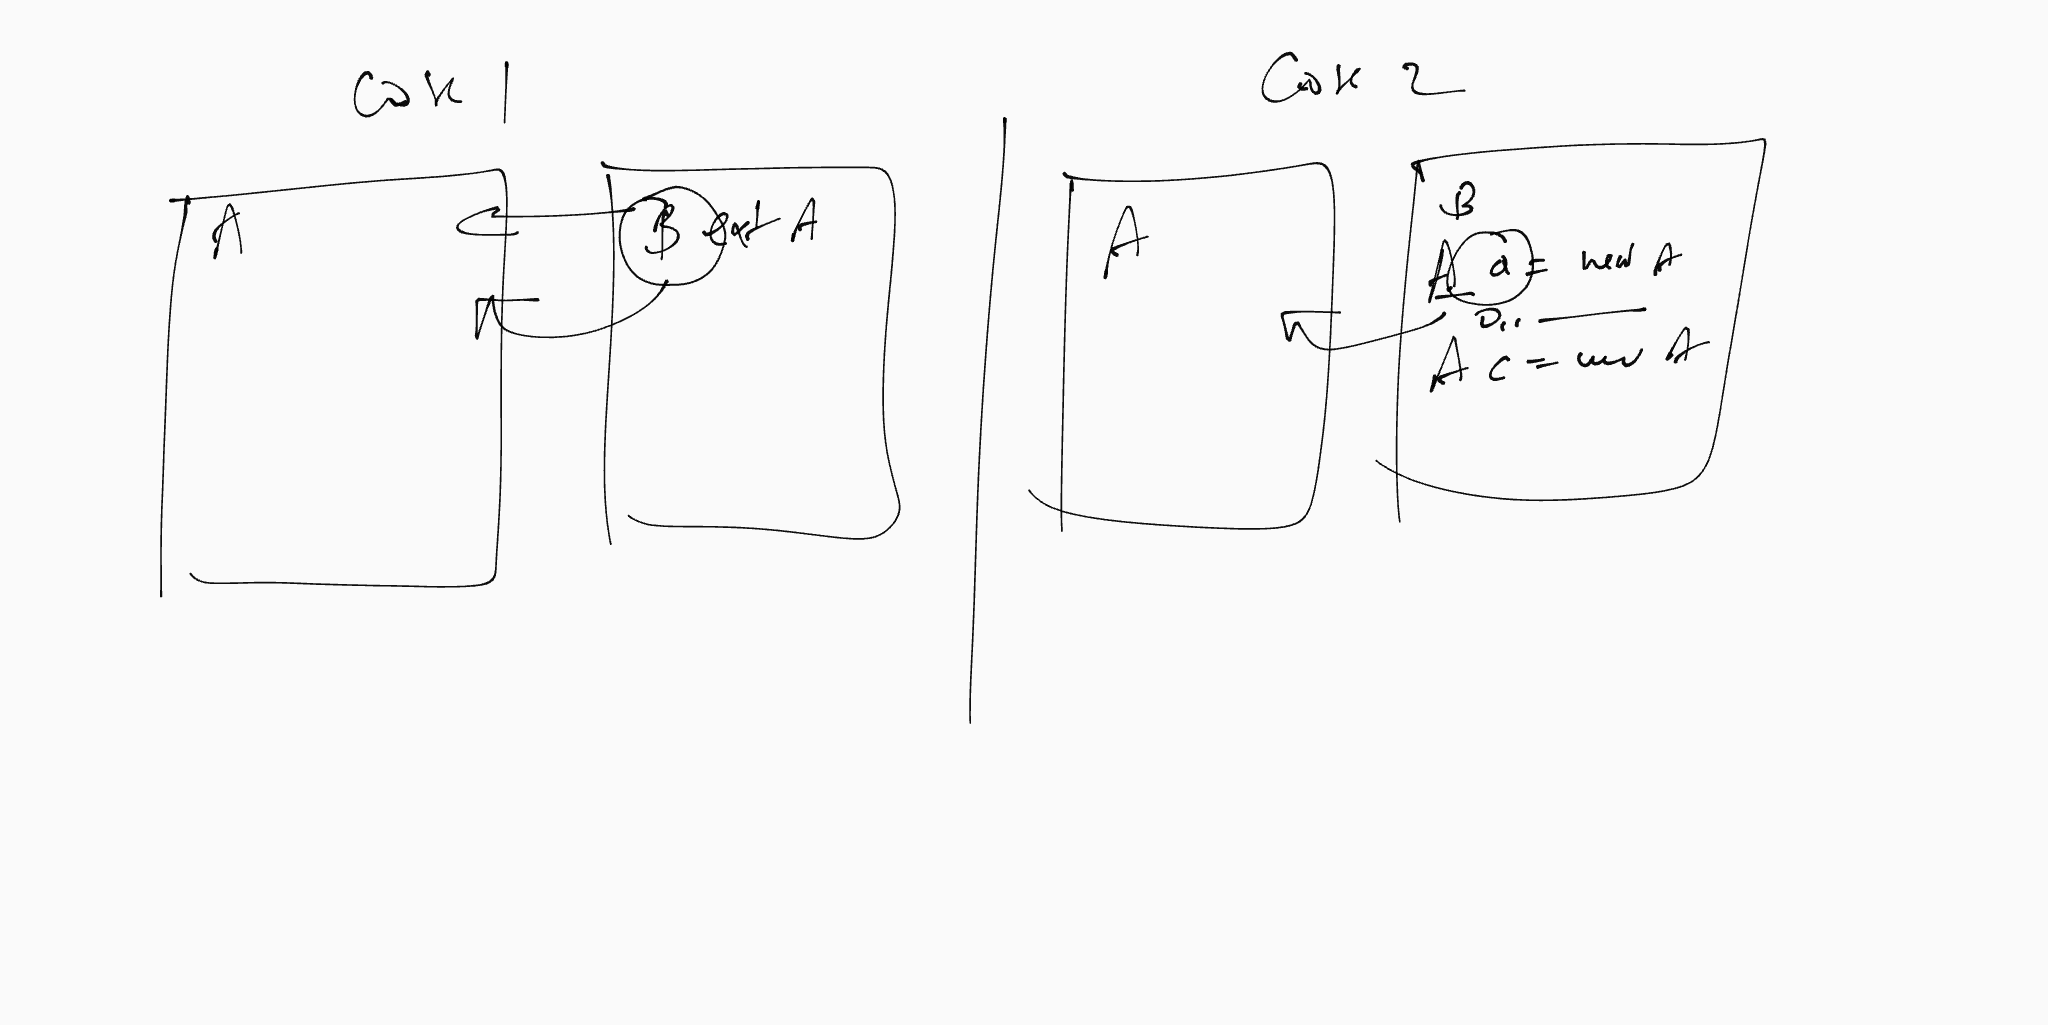 Case 1
A
B ext A
Case 2
A
B
A a = new A
A c = new A